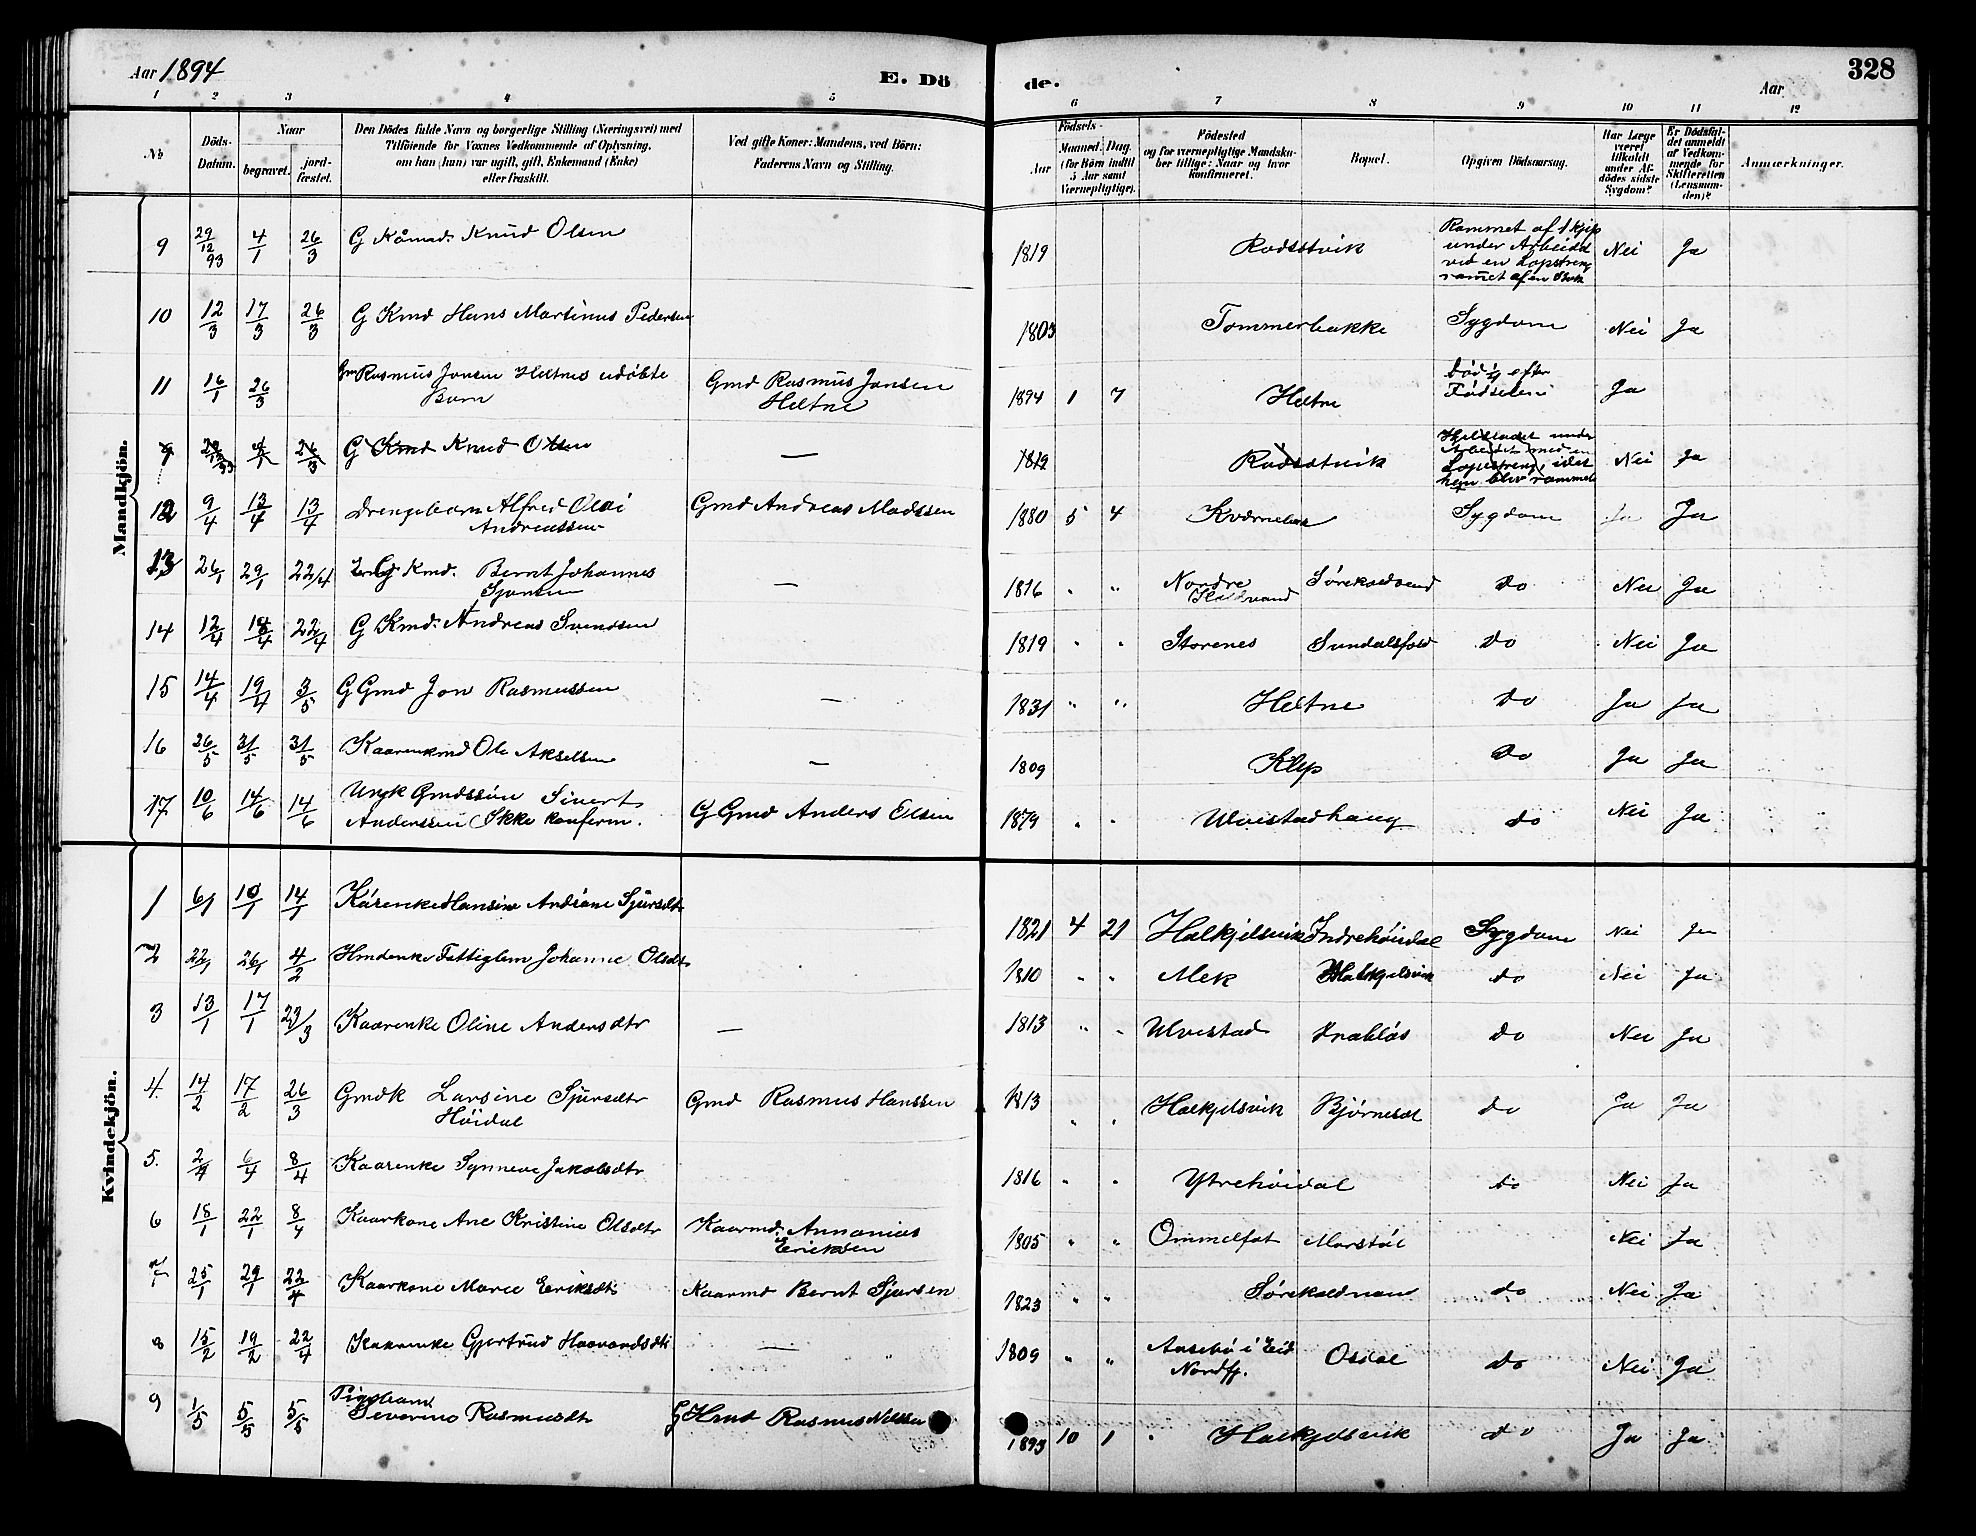 Aar 1894
E. Dö
de.
Aar
328
1 2 3 4 5 6 7 8 9 10 11 12
No
Döds-Datum.
Naar
begravet.
jord-fæstet.
Den Dödes fulde Navn og borgerlige Stilling (Næringsvei) med
Tilföiende for Voxnes Vedkommende af Oplysning,
om han (hun) var ugift, gift, Enkemand (Enke)
eller fraskilt.
Ved gifte Koner: Mandens, ved Börn:
Faderens Navn og Stilling.
Födsels-
Aar
Maaned. Dag.
(for Börn indtil
5 Aar samt
Værnepligtige).
Födested
og for værnepligtige Mandsku-
ber tillige: Naar og hvor
konfirmeret.
Bopæl.
Opgiven Dödsaarsag.
Har Læge
været
tilkaldt
under Af-
dödes sidste
Sygdom?
Er Dödsfal-
det anmeldt
af Vedkom-
mende for
Skifteretten
(Lensman-
den)?
Anmærkninger.
Mandkjön.
9 29/12 93 4/1 26/3 G Kåmad. Knud Olsen 1819 Rodsstvik Rammet af Skjip under Arbeidet ved en Lopstreng ramet af en Stok Nei Ja
10 12/3 17/3 26/3 G Kmd Hans Martinus Pedersen 1803 Tommerbakke Sygdom Nei Ja
11 16/1 26/3 Gm Rasmus Jonsen Heltnes udøbte Barn Gmd Rasmus Jansen Heltne 1894 1 7 Heltne Død efter Fødselen Ja
9 29/12 93 4/1 26/3 G Kmd Knud Olsen — 1819 Rodsstvik under Arbeidet med en Lopestreng, idet han blev rammet Nei Ja
12 9/4 13/4 13/4 Drengebarn Alfred Olai Andreassen Gmd Andreas Madssen 1880 5 4 Kvernebær Sygdom Ja Ja
13 26/1 29/1 22/4 G Kmd. Bernt Johannes Sjursen — 1816 " " Nordre Kaldvand Sørekaldvand Do Nei Ja
14 12/4 18/4 22/4 G Kmd. Andreas Svendsen 1819 " " Storenes Sundalsfold Do Nei Ja
15 14/4 19/4 3/5 G Gmd Jon Rasmussen — 1831 " " Heltne Do Ja Ja
16 26/5 31/5 31/5 Kaarenkmd Ole Akselsen — 1809 Klep Do Ja Ja
17 10/6 14/6 14/6 Ungk Gmdssøn Sivert Anderssen Ikke konferm. G Gmd Anders Olsen 1879 " " Ulvestadhaug do Nei Ja
Kvindekjön.
1 6/1 10/1 14/1 Kårenke Hansine Andrine Sjursdtr 1821 4 21 Halkjelsvik Indrehøidal Sygdom Nei Ja
2 22/1 26/1 4/2 Hmdenke Fattiglem Johanne Olsdtr 1810 " " Mek Halkjelsvik do Nei Ja
3 13/1 17/1 23/3 Kaarenke Oline Andersdtr — 1813 " " Ulvestad Do Nei Ja
4. 14/2 17/2 26/3 Gmdk Larsine Sjursdtr Høidal Gmd Rasmus Hanssen 1813 " " Halkjelsvik Bjørnesdt Do Ja Ja
5. 2/4 6/4 8/4 Kaarenke Synneve Jakobsdtr 1816 " " Ytrehøidal do Nei Ja
6 18/1 22/1 8/4 Kaarkone Ane Kristine Olsdtr Kaarmd. Annanias Eriksen 1805 " " Ommelfot Morstøl Nei Ja
7 25/1 29/1 22/4 Kaarkone Marie Eriksdtr Kaarmd Bernt Sjursen 1823 " " Sørekaldvand do Nei Ja
8 15/2 19/2 22/4 Kaarenke Gjertrud Haavardsdtr — 1809 " " Aasebø i Eid Nordfj. Osdal Do Nei Ja
9 1/5 5/5 5/5 Pigebarn Severine Rasmusdtr G Hmd Rasmus Nilssen 1893 10 1 Halkjelsvik do Ja Ja